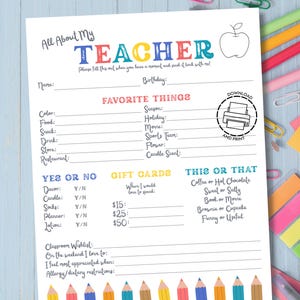 All About My
TEACHER
Please fill this out when you have a moment and send it back with me!
Name: Birthday:
FAVORITE THINGS
Color: Season:
Food: Holiday:
Snack: Movie:
Drink: Sports Team:
Store: Flower:
Restaurant: Candle Scent:
DOWNLOAD
AND PRINT
YES OR NO GIFT CARDS THIS OR THAT
Decor: Y/N When I would love to geek: Coffee or Hot Chocolate
Candle: Y/N Sweet or Salty
Socks: Y/N $15: Book or Movie
Planner: Y/N $25: Brownies or Cupcake
Lotion: Y/N $50: Funny or Useful
Classroom Wishlist:
On the weekend I love to:
I feel most appreciated when:
Allergy/dietary restrictions: